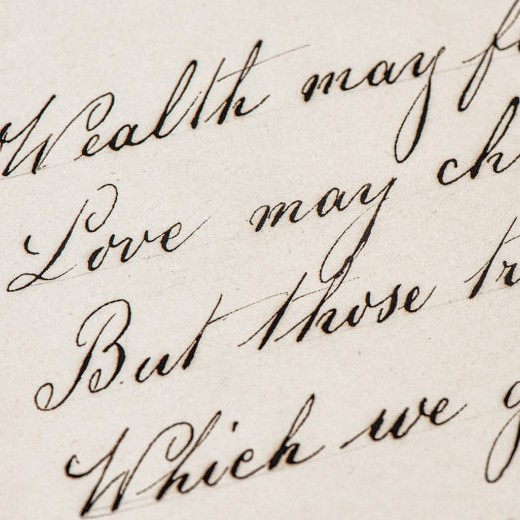 Wealth may f
Love may ch
But those tr
Which we g